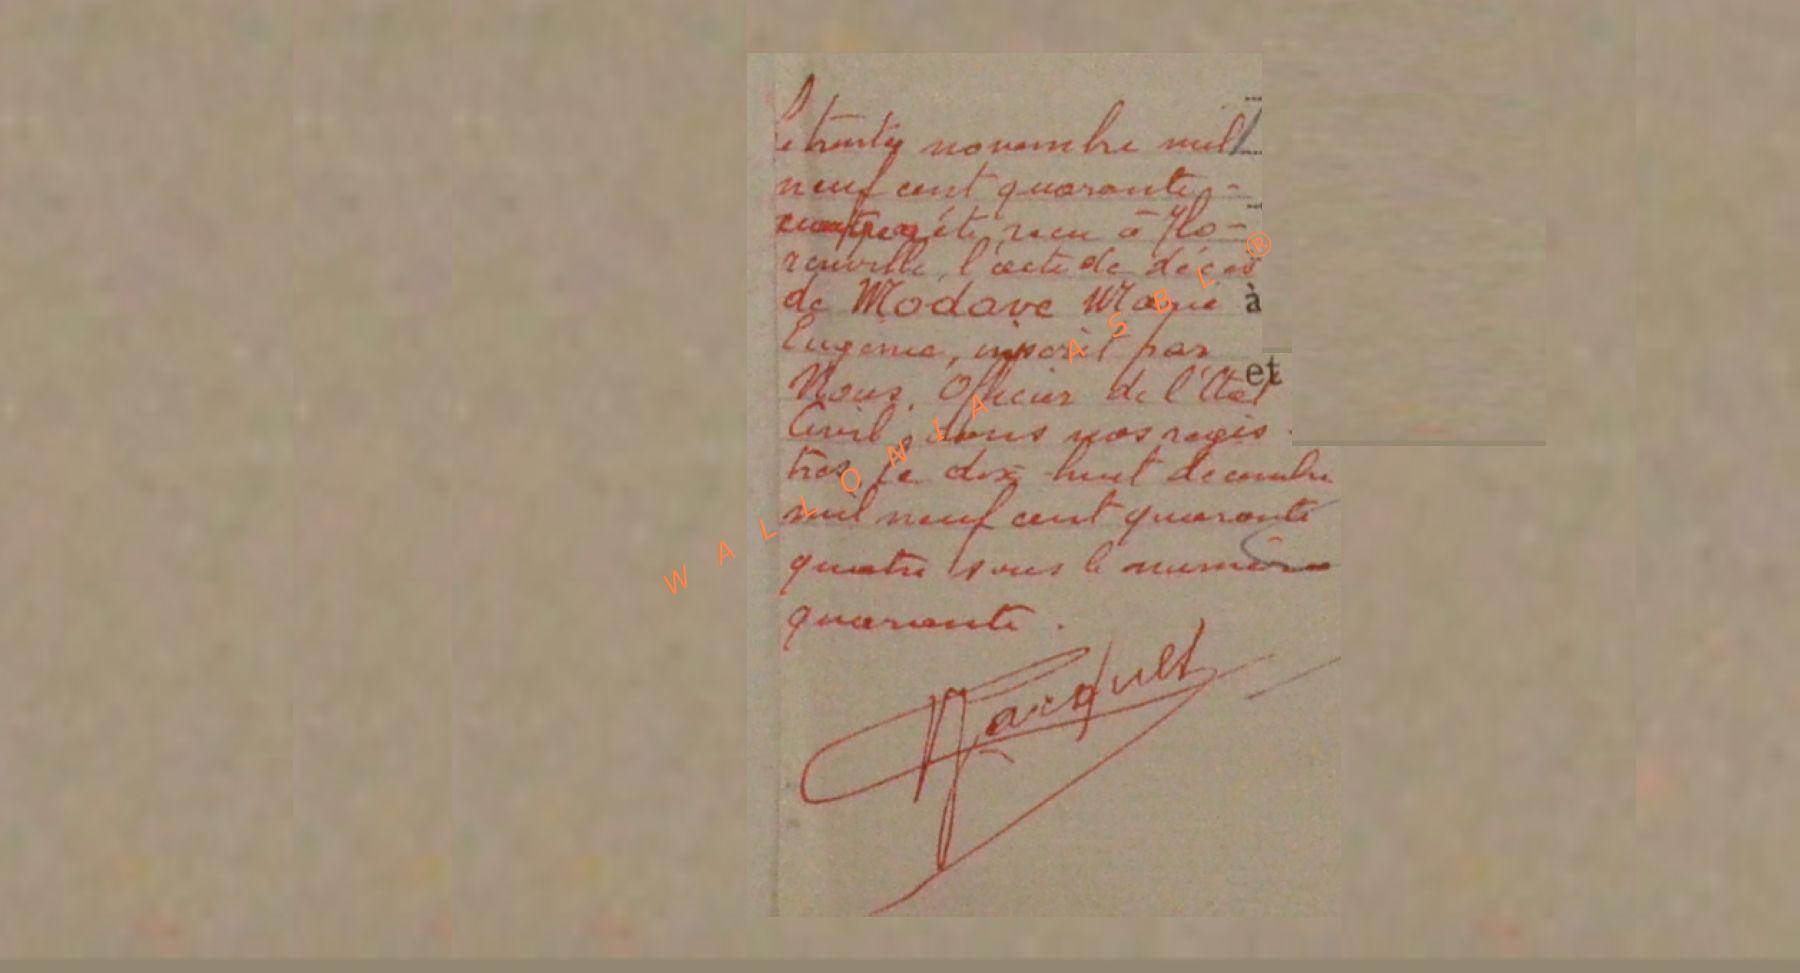 Le trente novembre mil
neuf cent quarante-
quatre a été reçu à Flo-
renville, l'acte de décès
de Modave Marie à
Eugenie, inscrit par
Nous, Officier de l'Etat et
Civil, dans nos regis-
tres le dix-huit decembre
mil neuf cent quarante
quatre sous le numéro
quarante.
WALLONIA ASBL®